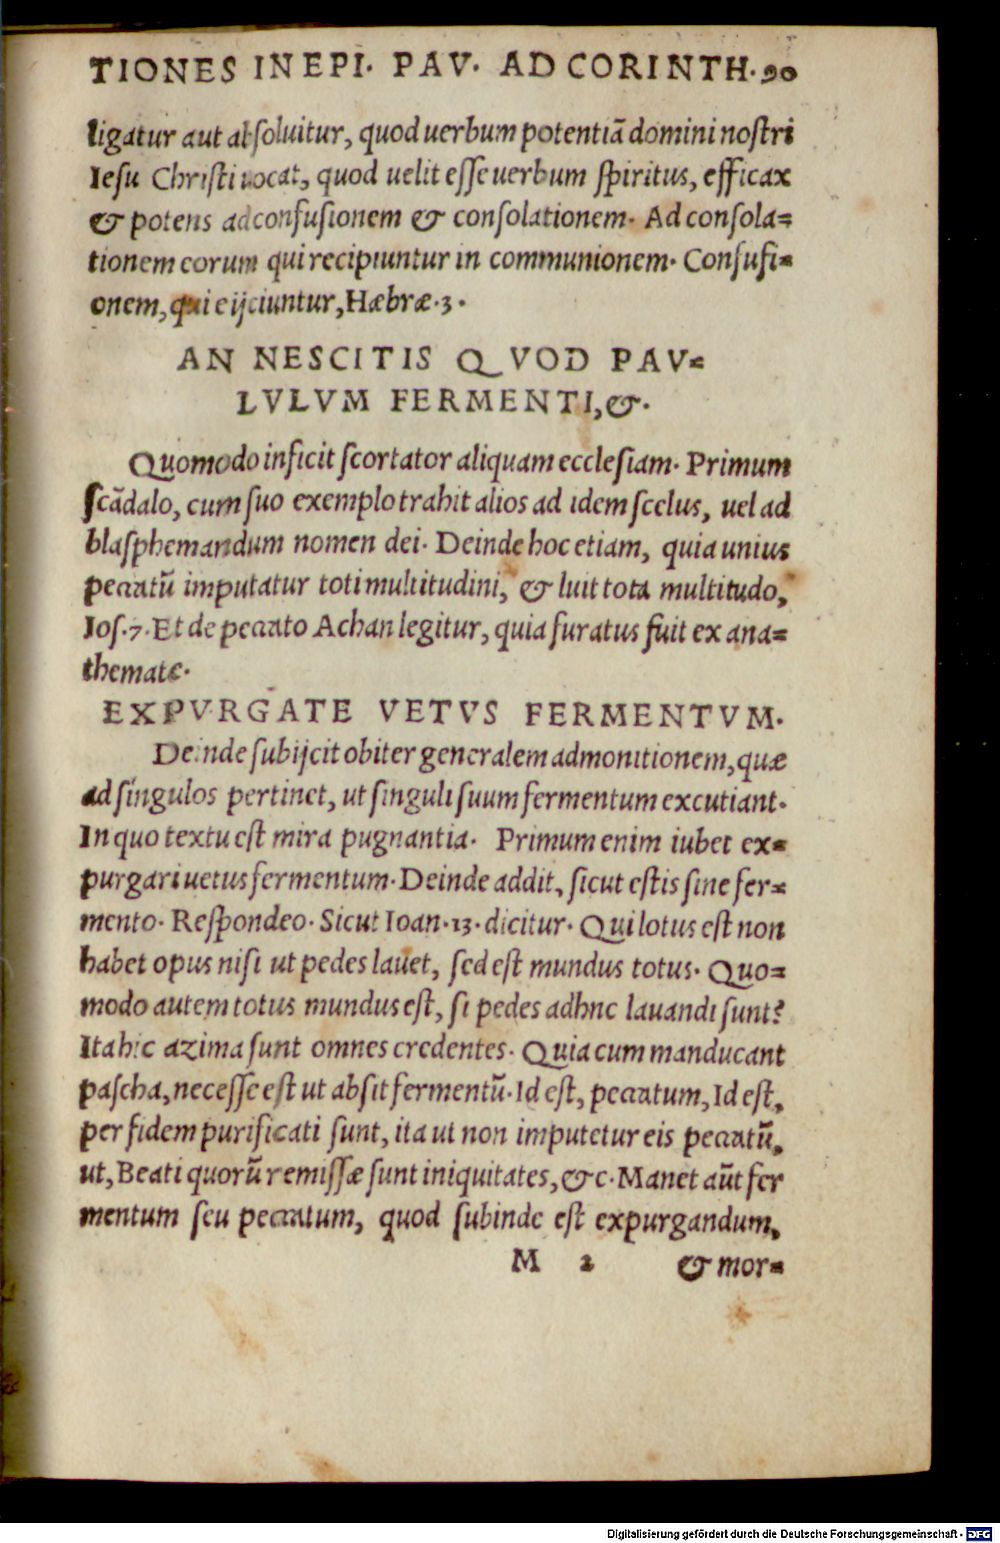 TIONES IN EPI. PAV. AD CORINTH. 90
ligatur aut absoluitur, quod uerbum potentiā domini nostri
Iesu Christi uocat, quod uelit esse uerbum spiritus, efficax
& potens ad confusionem & consolationem. Ad consola=
tionem eorum qui recipiuntur in communionem. Confusi=
onem, qui eijciuntur, Hæbræ. 3.
AN NESCITIS QVOD PAV=
LVLVM FERMENTI, &.
Quomodo inficit scortator aliquam ecclesiam. Primum
scādalo, cum suo exemplo trahit alios ad idem scelus, uel ad
blasphemandum nomen dei. Deinde hoc etiam, quia unius
peccatū imputatur toti multitudini, & luit tota multitudo,
Ios. 7. Et de peccato Achan legitur, quia furatus fuit ex ana=
themate.
EXPVRGATE VETVS FERMENTVM.
Deinde subijcit obiter generalem admonitionem, quæ
ad singulos pertinet, ut singuli suum fermentum excutiant.
In quo textu est mira pugnantia. Primum enim iubet ex=
purgari uetus fermentum. Deinde addit, sicut estis sine fer=
mento. Respondeo. Sicut Ioan. 13. dicitur. Qui lotus est non
habet opus nisi ut pedes lauet, sed est mundus totus. Quo=
modo autem totus mundus est, si pedes adhnc lauandi sunt?
Ita hic azima sunt omnes credentes. Quia cum manducant
pascha, necesse est ut absit fermentū. Id est, peccatum, Id est,
per fidem purificati sunt, ita ut non imputetur eis peccatū,
ut, Beati quorū remissæ sunt iniquitates, &c. Manet aūt fer
mentum seu peccatum, quod subinde est expurgandum,
M 2 & mor=
Digitalisierung gefördert durch die Deutsche Forschungsgemeinschaft - DFG